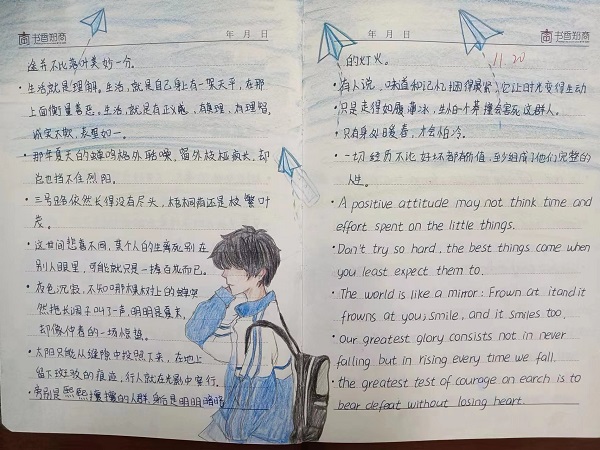 书香新商
年 月 日
途并不比落叶美妙一分。
·生活就是理解。生活,就是自己身上有一架天平,在那
上面衡量善恶。生活,就是有正义感、有真理,有理智,
诚实不欺,表里如一。
·那年夏天的蝉鸣格外聒噪,窗外枝桠疯长,却
总也挡不住烈阳。
·三号路依然长得没有尽头,梧桐树还是枝繁叶
茂。
·这世间悲喜不同,某个人的生离死别在
别人眼里,可能就只是一捧白灰而已。
·夜色沉寂,不知哪棵树上的蝉突
然拖长调子叫了一声,明明是夏末,
却像仲春的一场惊蛰。
·太阳只能从缝隙中投照下来,在地上
留下斑驳的痕迹,行人就在光影中穿行。
·旁别是熙熙攘攘的人群,身后是明明暗暗
书香新商
年 月 日
11.20
的灯火。
·有人说,味道和记忆捆得最紧,它让时光变得生动
·只是走得如履薄冰,生怕个莽撞会害死这群人。
·只有身处暖春,才会怕冷。
·一切经历不论好坏都有价值,至少组成了他们完整的
人生。
·A positive attitude may not think time and
effort spent on the little things.
·Don't try so hard, the best things come when
you least expect them to.
·The world is like a mirror: Frown at itand it
frowns at you; smile, and it smiles too.
·Our greatest glory consists not in never
falling but in rising every time we fall.
·the greatest test of courage on earch is to
bear defeat without losing heart.